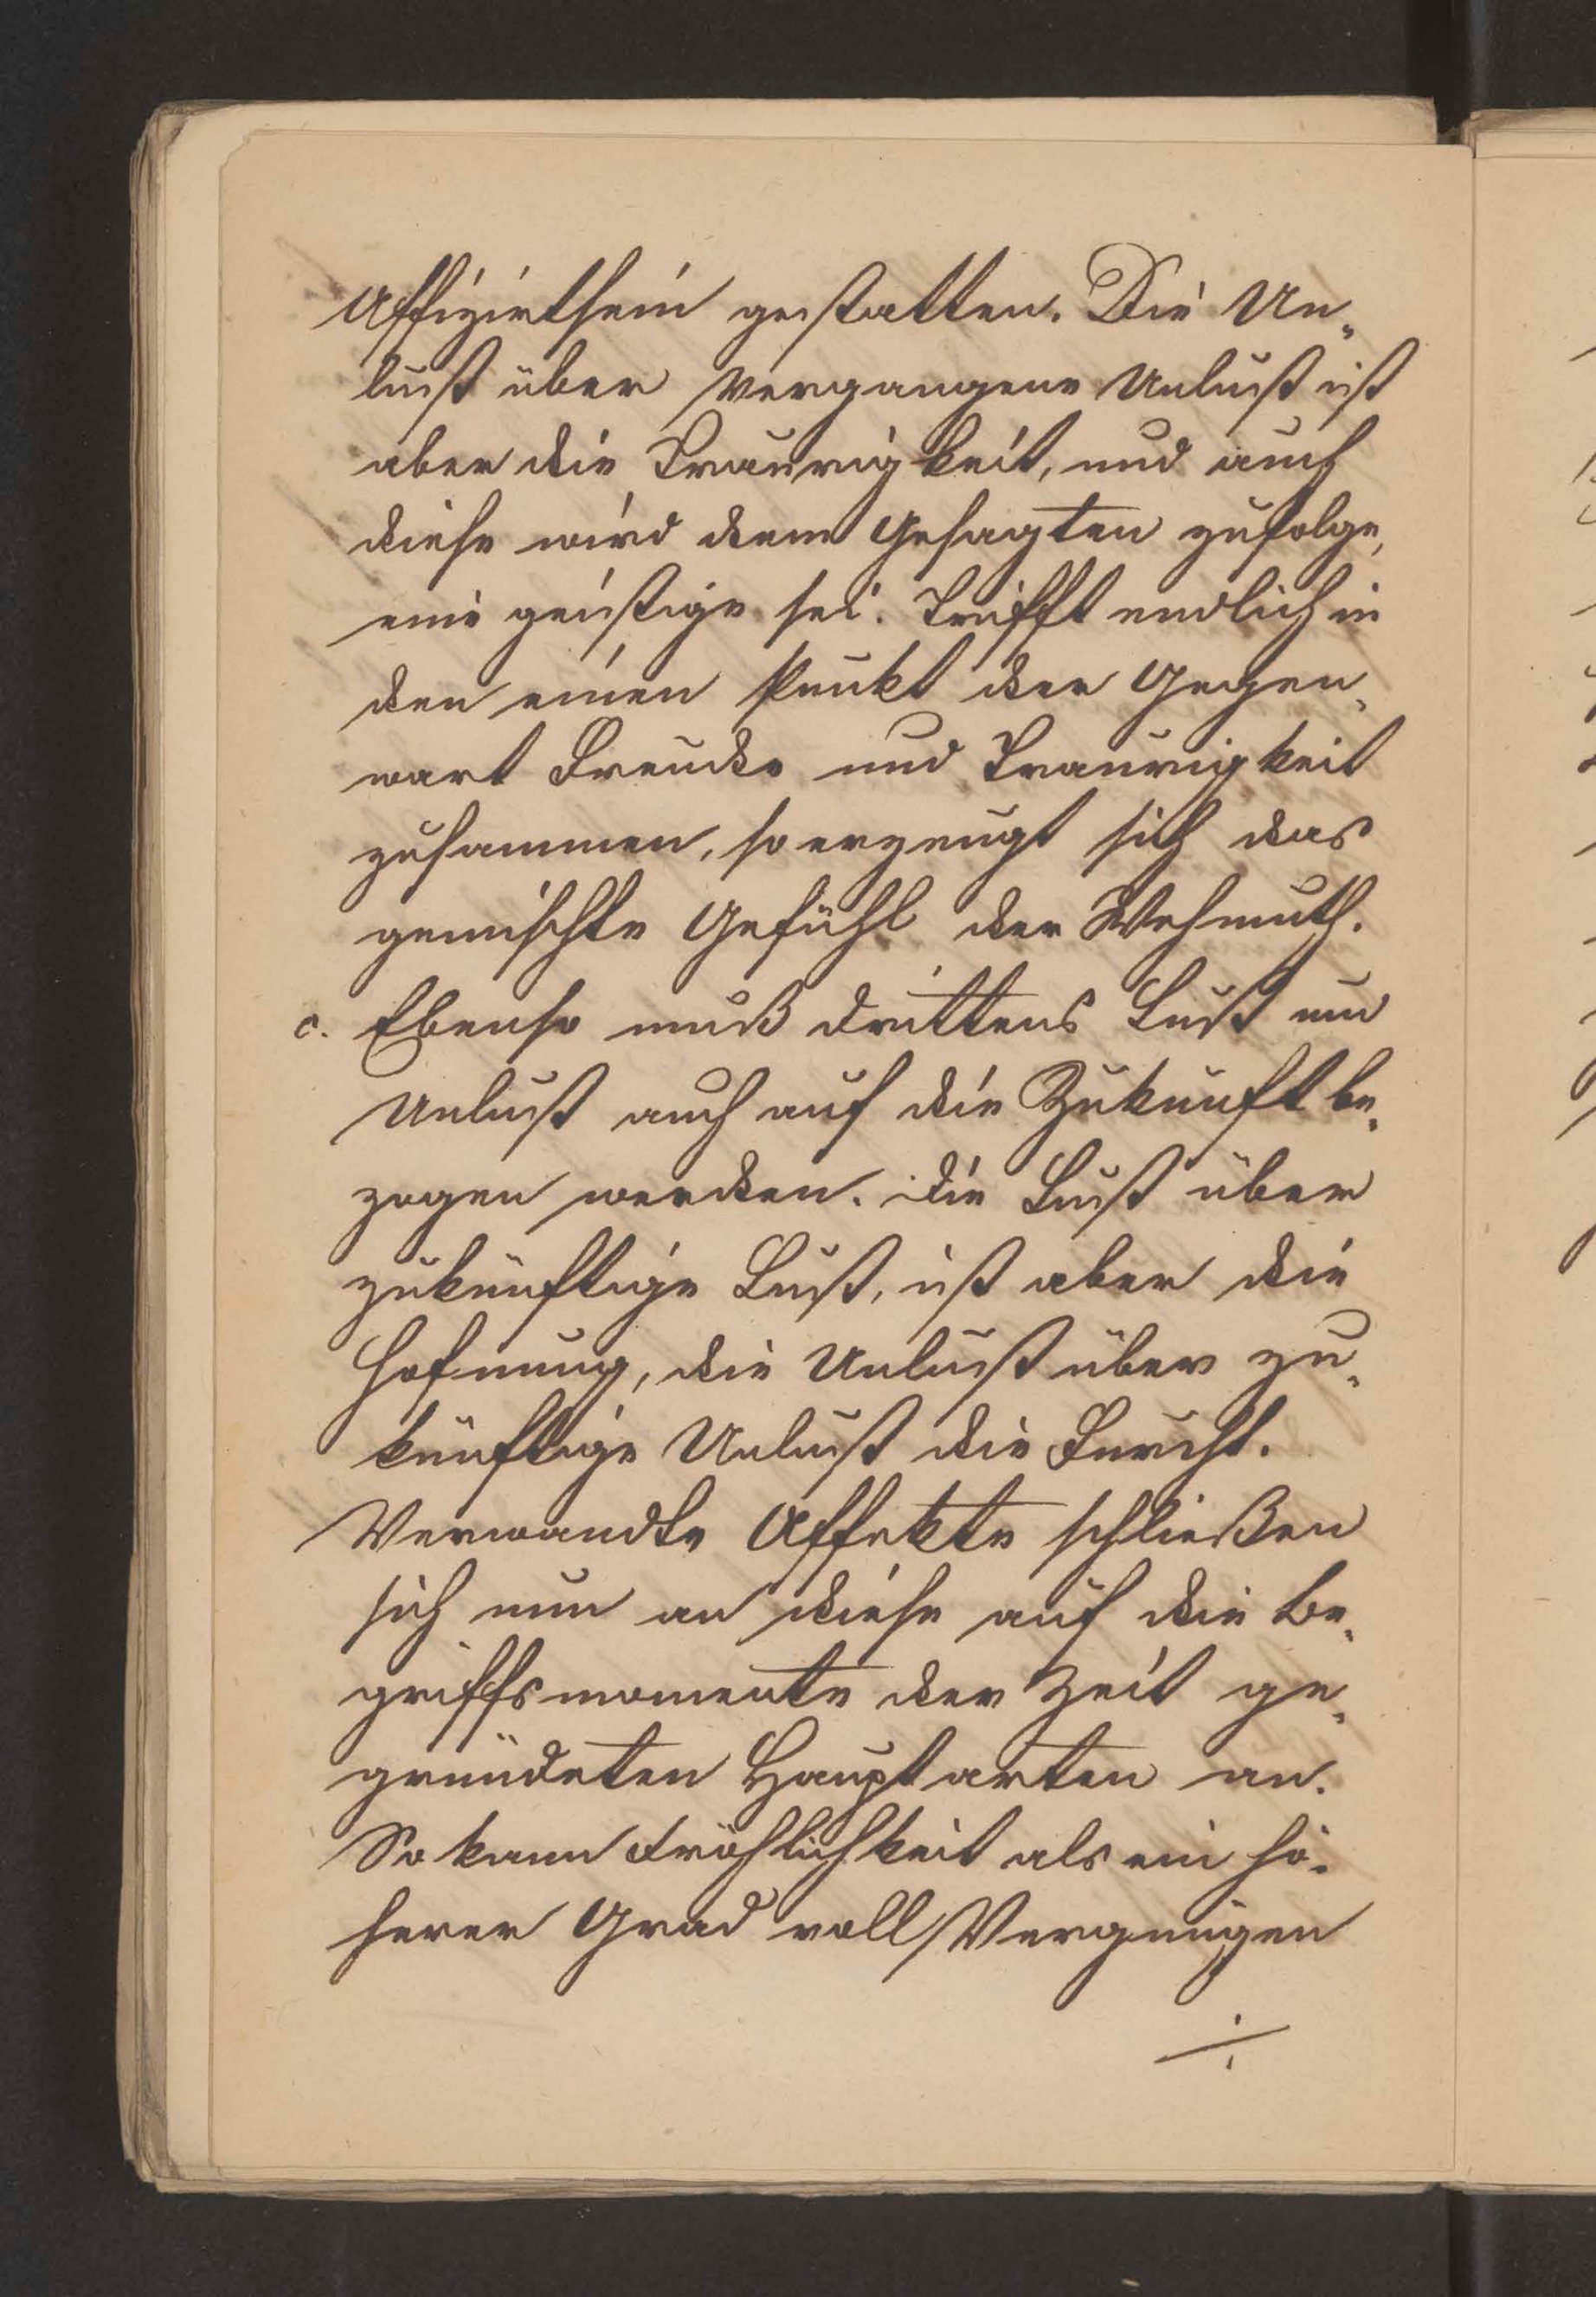 Affizirtsein gestatten. Die Un„
lust über vergangene Unlust ist
aber die Traurigkeit, und auch
diese wird dem Gesagten zufolge,
eine geistige sei. Trifft endlich in
den einen Punkt der Gegen„
wart Freude und Traurigkeit
zusammen, so erzeugt sich das
gemischte Gefühl der Wehmuth.
c. Ebenso muß drittens Lust und
Unlust auch auf die Zukunft be„
zogen werden. Die Lust über
zukünftige Lust, ist aber die
Hofnung, die Unlust über zu„
künftige Unlust die Furcht.
Verwandte Affekte schließen
sich nun an diese auf die Be„
griffsmomente der Zeit ge„
gründeten Hauptarten an.
So kann Fröhlichkeit als ein hö„
herer Grad voll Vergnügen